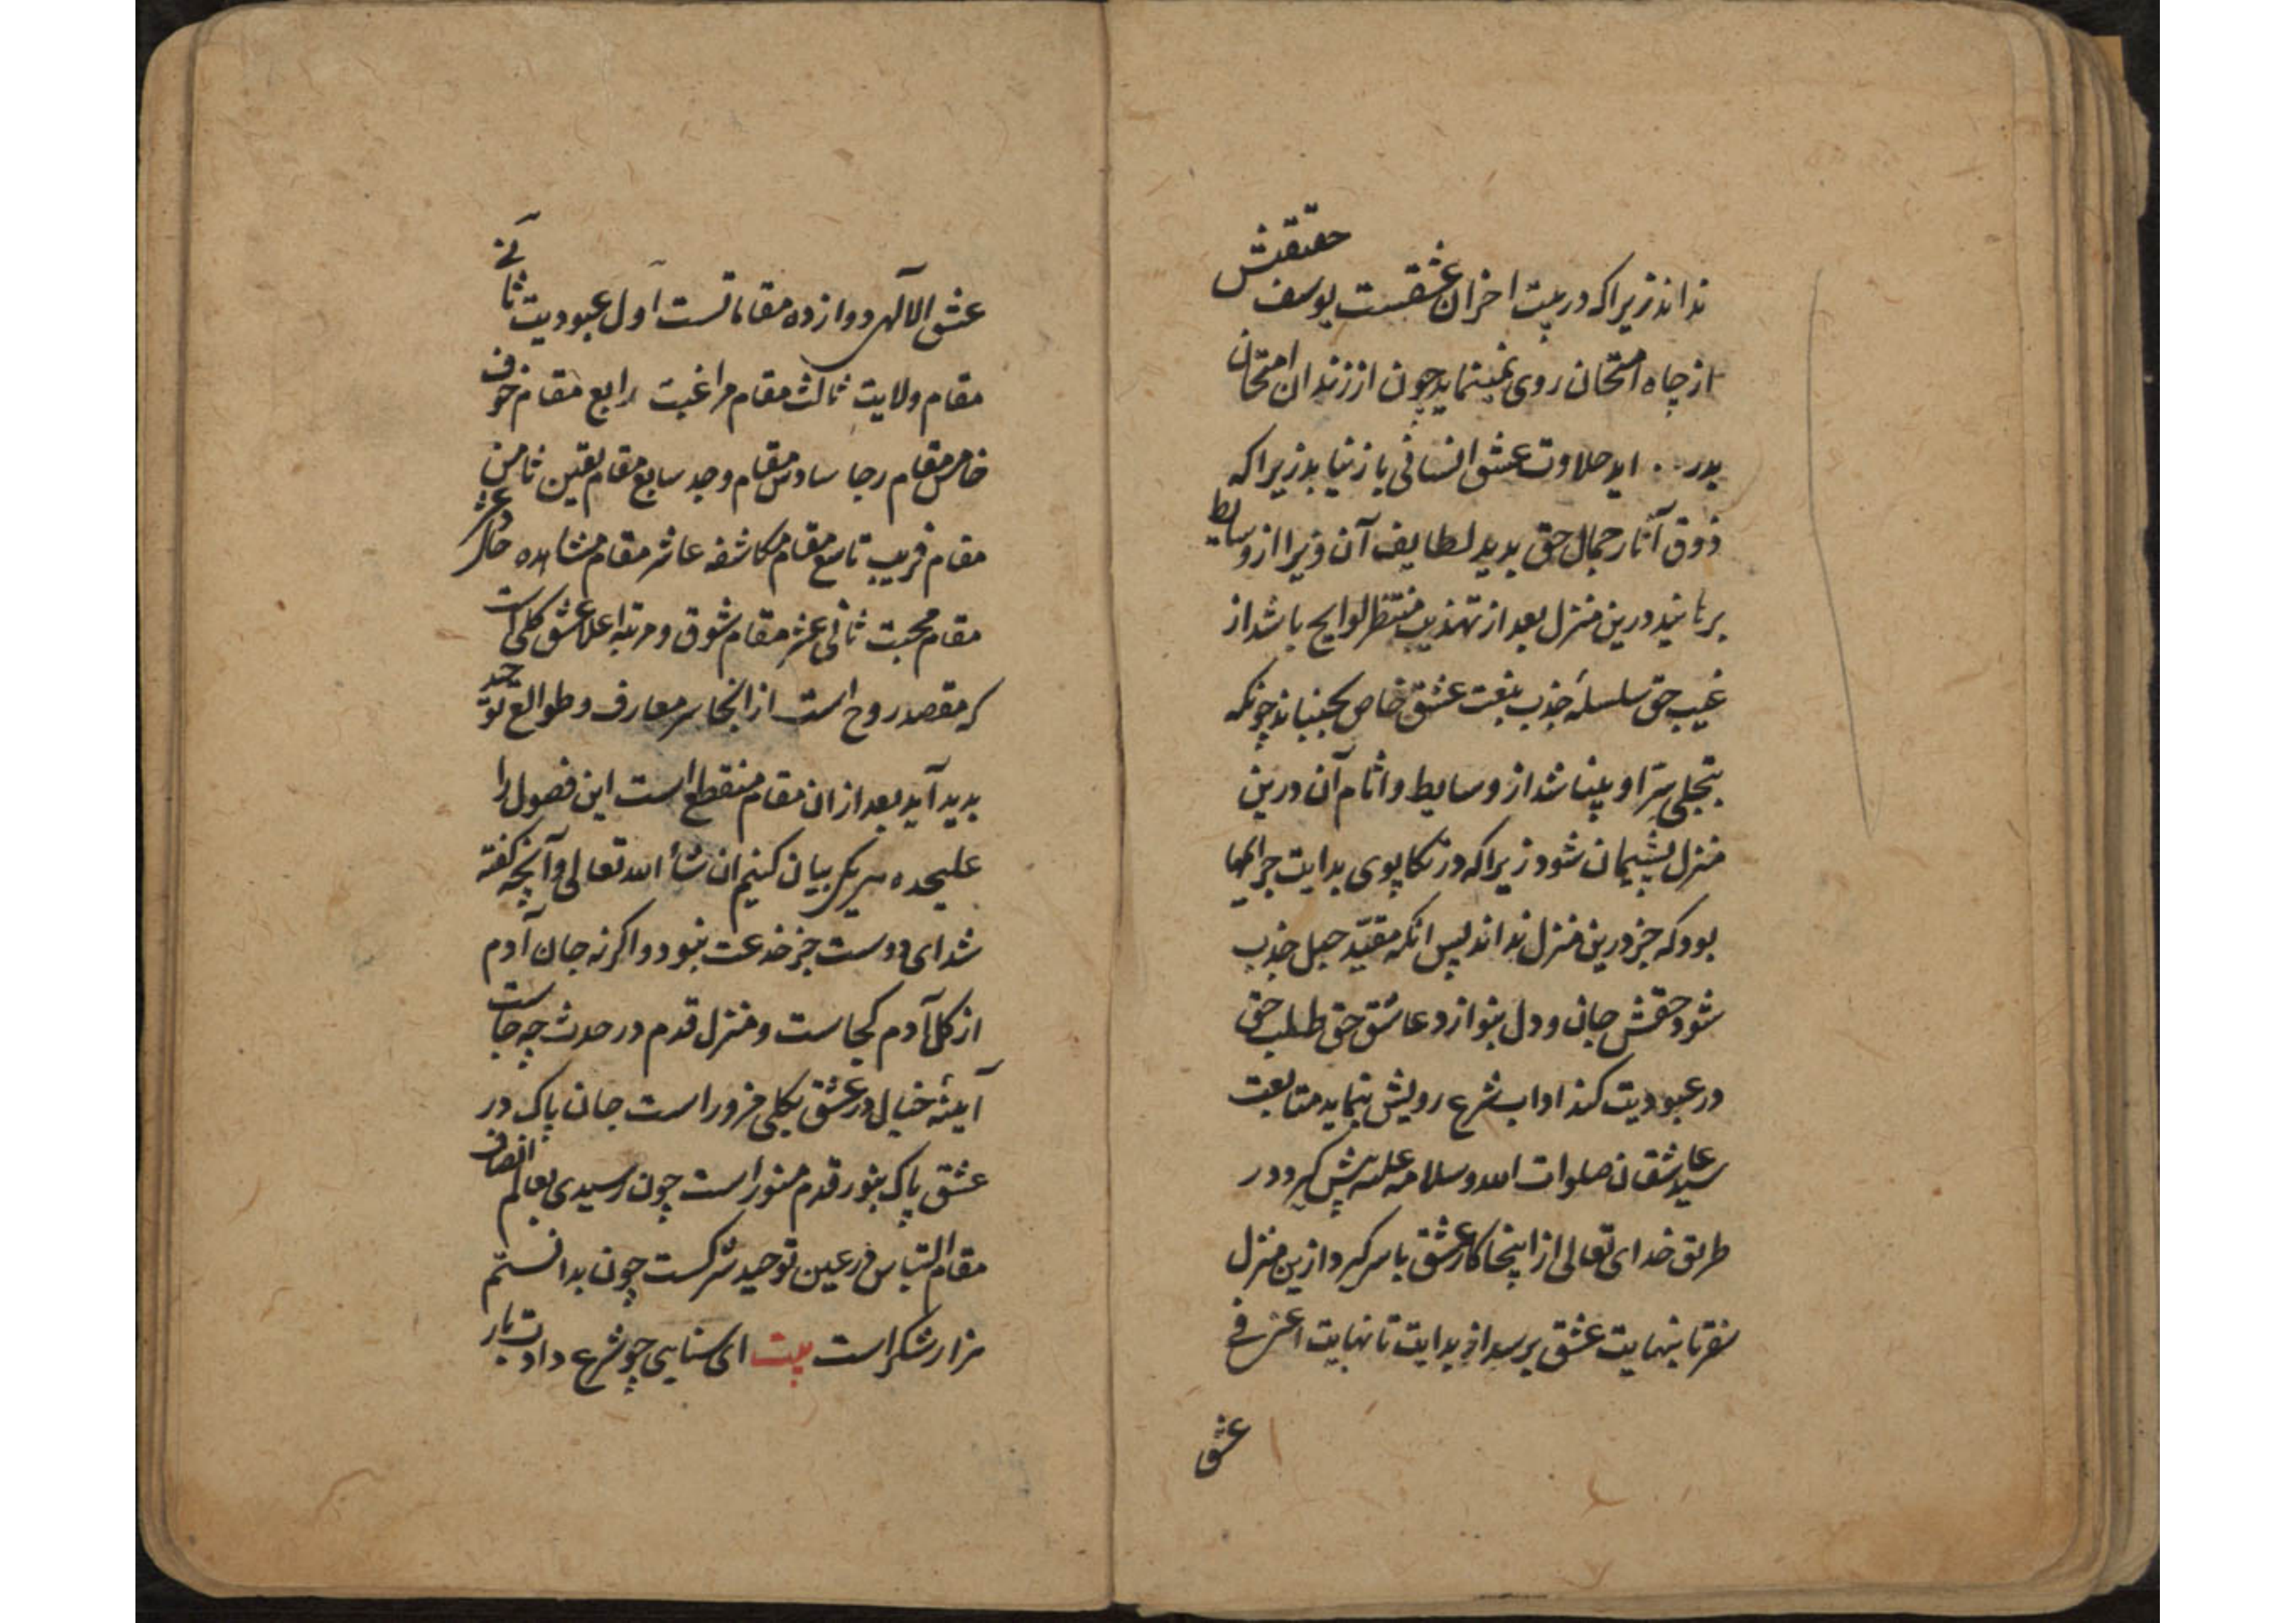 نداند زیراکه در بیت احزان عشقست یوسف حقیقتش
از چاه امتحان روی نمینماید چون از زندان امتحان
بدر اید حلاوت عشق انسانی باز نیابد زیراکه
ذوق آثار جمال حق بدید لطایف آن ویرا از وسایط
برهانید درین منزل بعد از تهذیب منتظر لوایح باشد از
غیب حق سلسلۀ جذب بنعت عشق خاص بجنباند چونکه
بتجلی سر او بینا شد از وسایط و اثام آن درین
منزل پشیمان شود زیراکه در تکاپوی بدایت جراٸمها
بود که جز درین منزل نداند پس انکه مقید حبل جذب
شود حقش جان و دل بنوازد عاشق حق طلب حق
در عبودیت کند اداب شرع رویش بنماید متابعت
سید عاشقان صلوات الله و سلامه علیه پیش گیرد در
طریق خدای تعالی از اینجا کار عشق با سر گیرد ازین منزل
سفر تا بنهایت عشق برسد از بدایت تا نهایت اعنی فی
عشق
عشق الالهی دوازده مقاماتست اول عبودیت ثانی
مقام ولایت ثالث مقام مراغبت رابع مقام خوف
خامس مقام رجا سادس مقام وجد سابع مقام یقین ثامن
مقام قریب تاسع مقام مکاشفه عاشر مقام مشاهده حادی عشر
مقام محبت ثانی عشر مقام شوق و مرتبه اعلا عشق کلی است
که مقصد روح است از انجا سر معارف و طوالع توحید
بدید آید بعد از ان مقام منقطع است این فصول را
علیحده هر یک بیان کنیم ان شأ الله تعالی و آنچه گفته
شد ای دوست جز خدعت نبود و اگر نه جان آدم
از کل آدم کجاست و منزل قدم در حدث چه جاست
آینۀ خیال در عشق بکلی مزور است جان پاک در
عشق پاک بنور قدم منور است چون رسیدی بعالم انصاف
مقام التباس در عین توحید شرکست چون بدانستم
هزار شکر است بیت ای سنایی چو شرع دادت بار